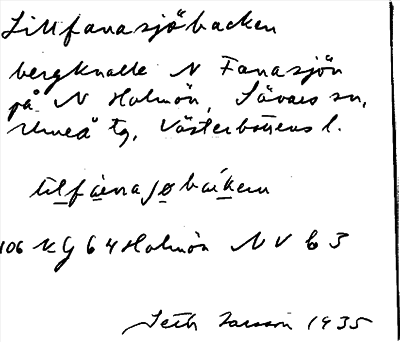 Lillfanasjöbacken
bergknalle N Fanasjön
på N Holmön, Sävars sn,
Umeå tg, Västerbottens l.
106 KG 64 Holmön NV b 3
Seth Larsson 1935